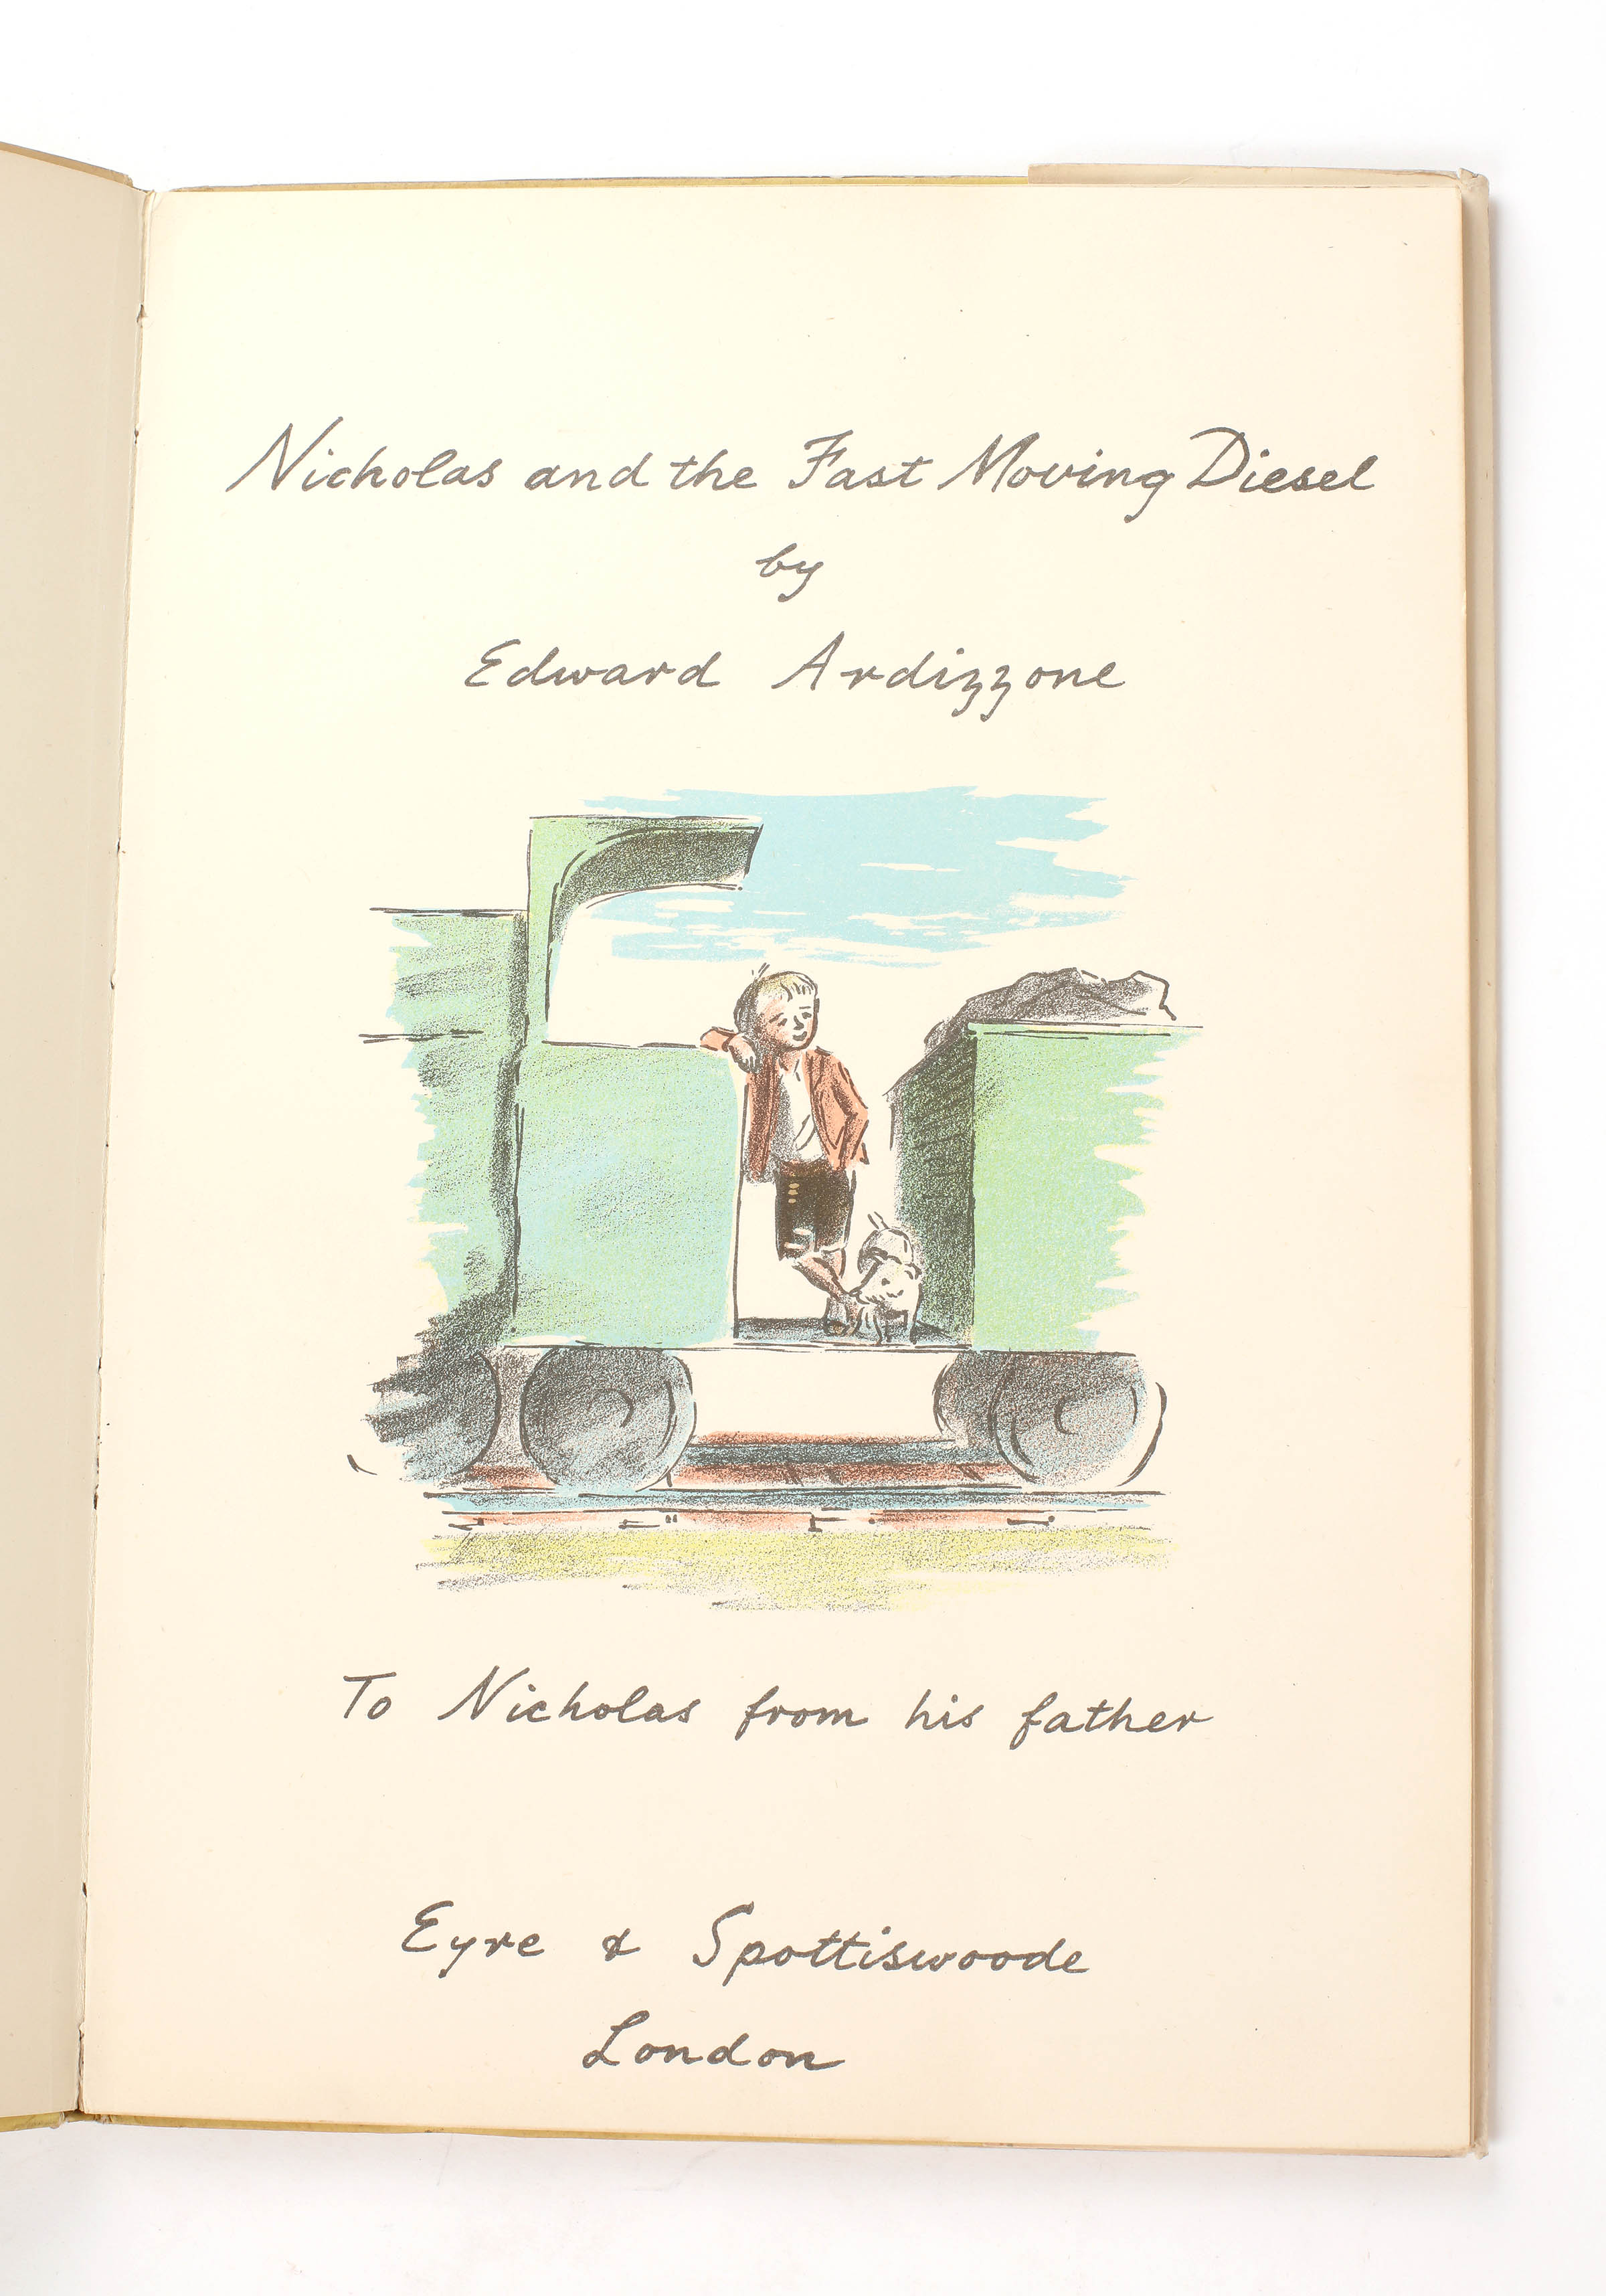 Nicholas and the Fast Moving Diesel
by
Edward Ardizzone
To Nicholas from his father
Eyre & Spottiswoode
London